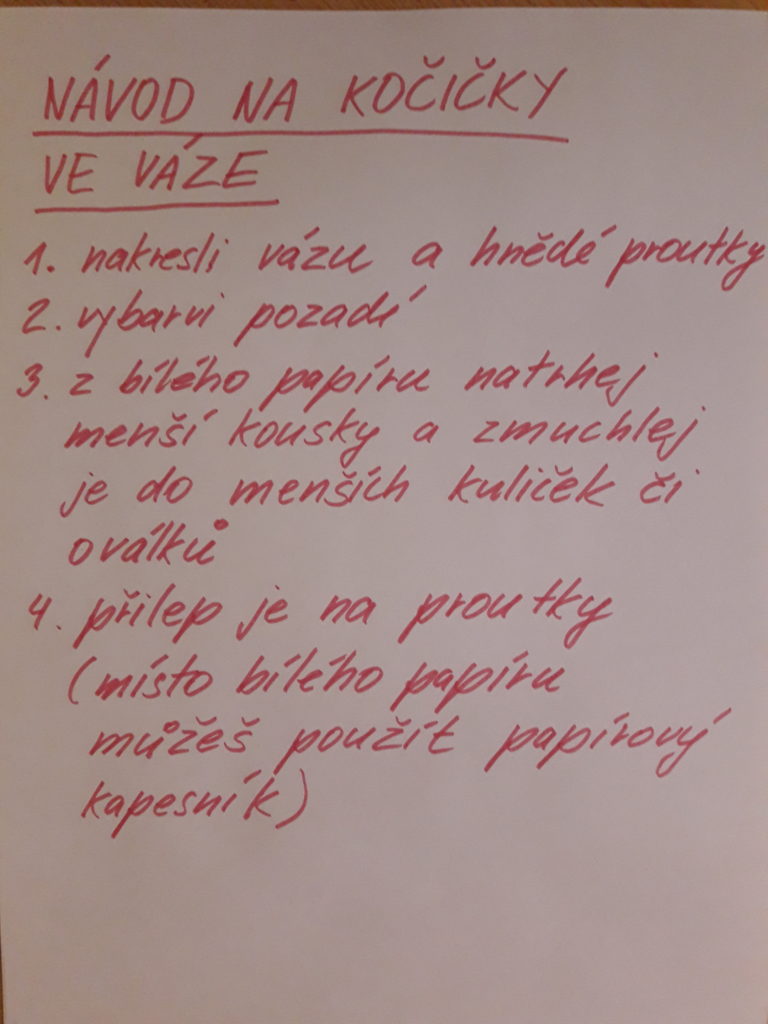 NÁVOD NA KOČIČKY
VE VÁZE
1. nakresli vázu a hnědé proutky
2. vybarvi pozadí
3. z bílého papíru natrhej
menší kousky a zmuchlej
je do menších kuliček či
oválků
4. přilep je na proutky
(místo bílého papíru
můžeš použít papírový
kapesník)